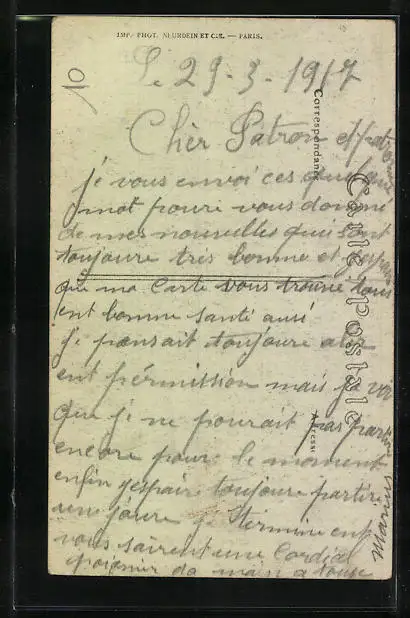 IMP. PHOT. NEURDEIN ET CIE. — PARIS.
10
Le 29-3-1917
Correspondance
Carte Postale
Adresse
Chèr Patron et patronne
je vous envoi ces quelque
mot pourè vous donné
de mes nouvelles qui sont
toujoure très bonne et j'espair
que ma Carte vous trouve tous
ent bonne santé ausi
je pansait toujoure aler
ent pérmission mais je voi
que je ne pourait pas partire
encore pour le moment
enfin jespair toujoure partire
une joure je términe ent
vous sairent une Cordial
poignier de main a tous